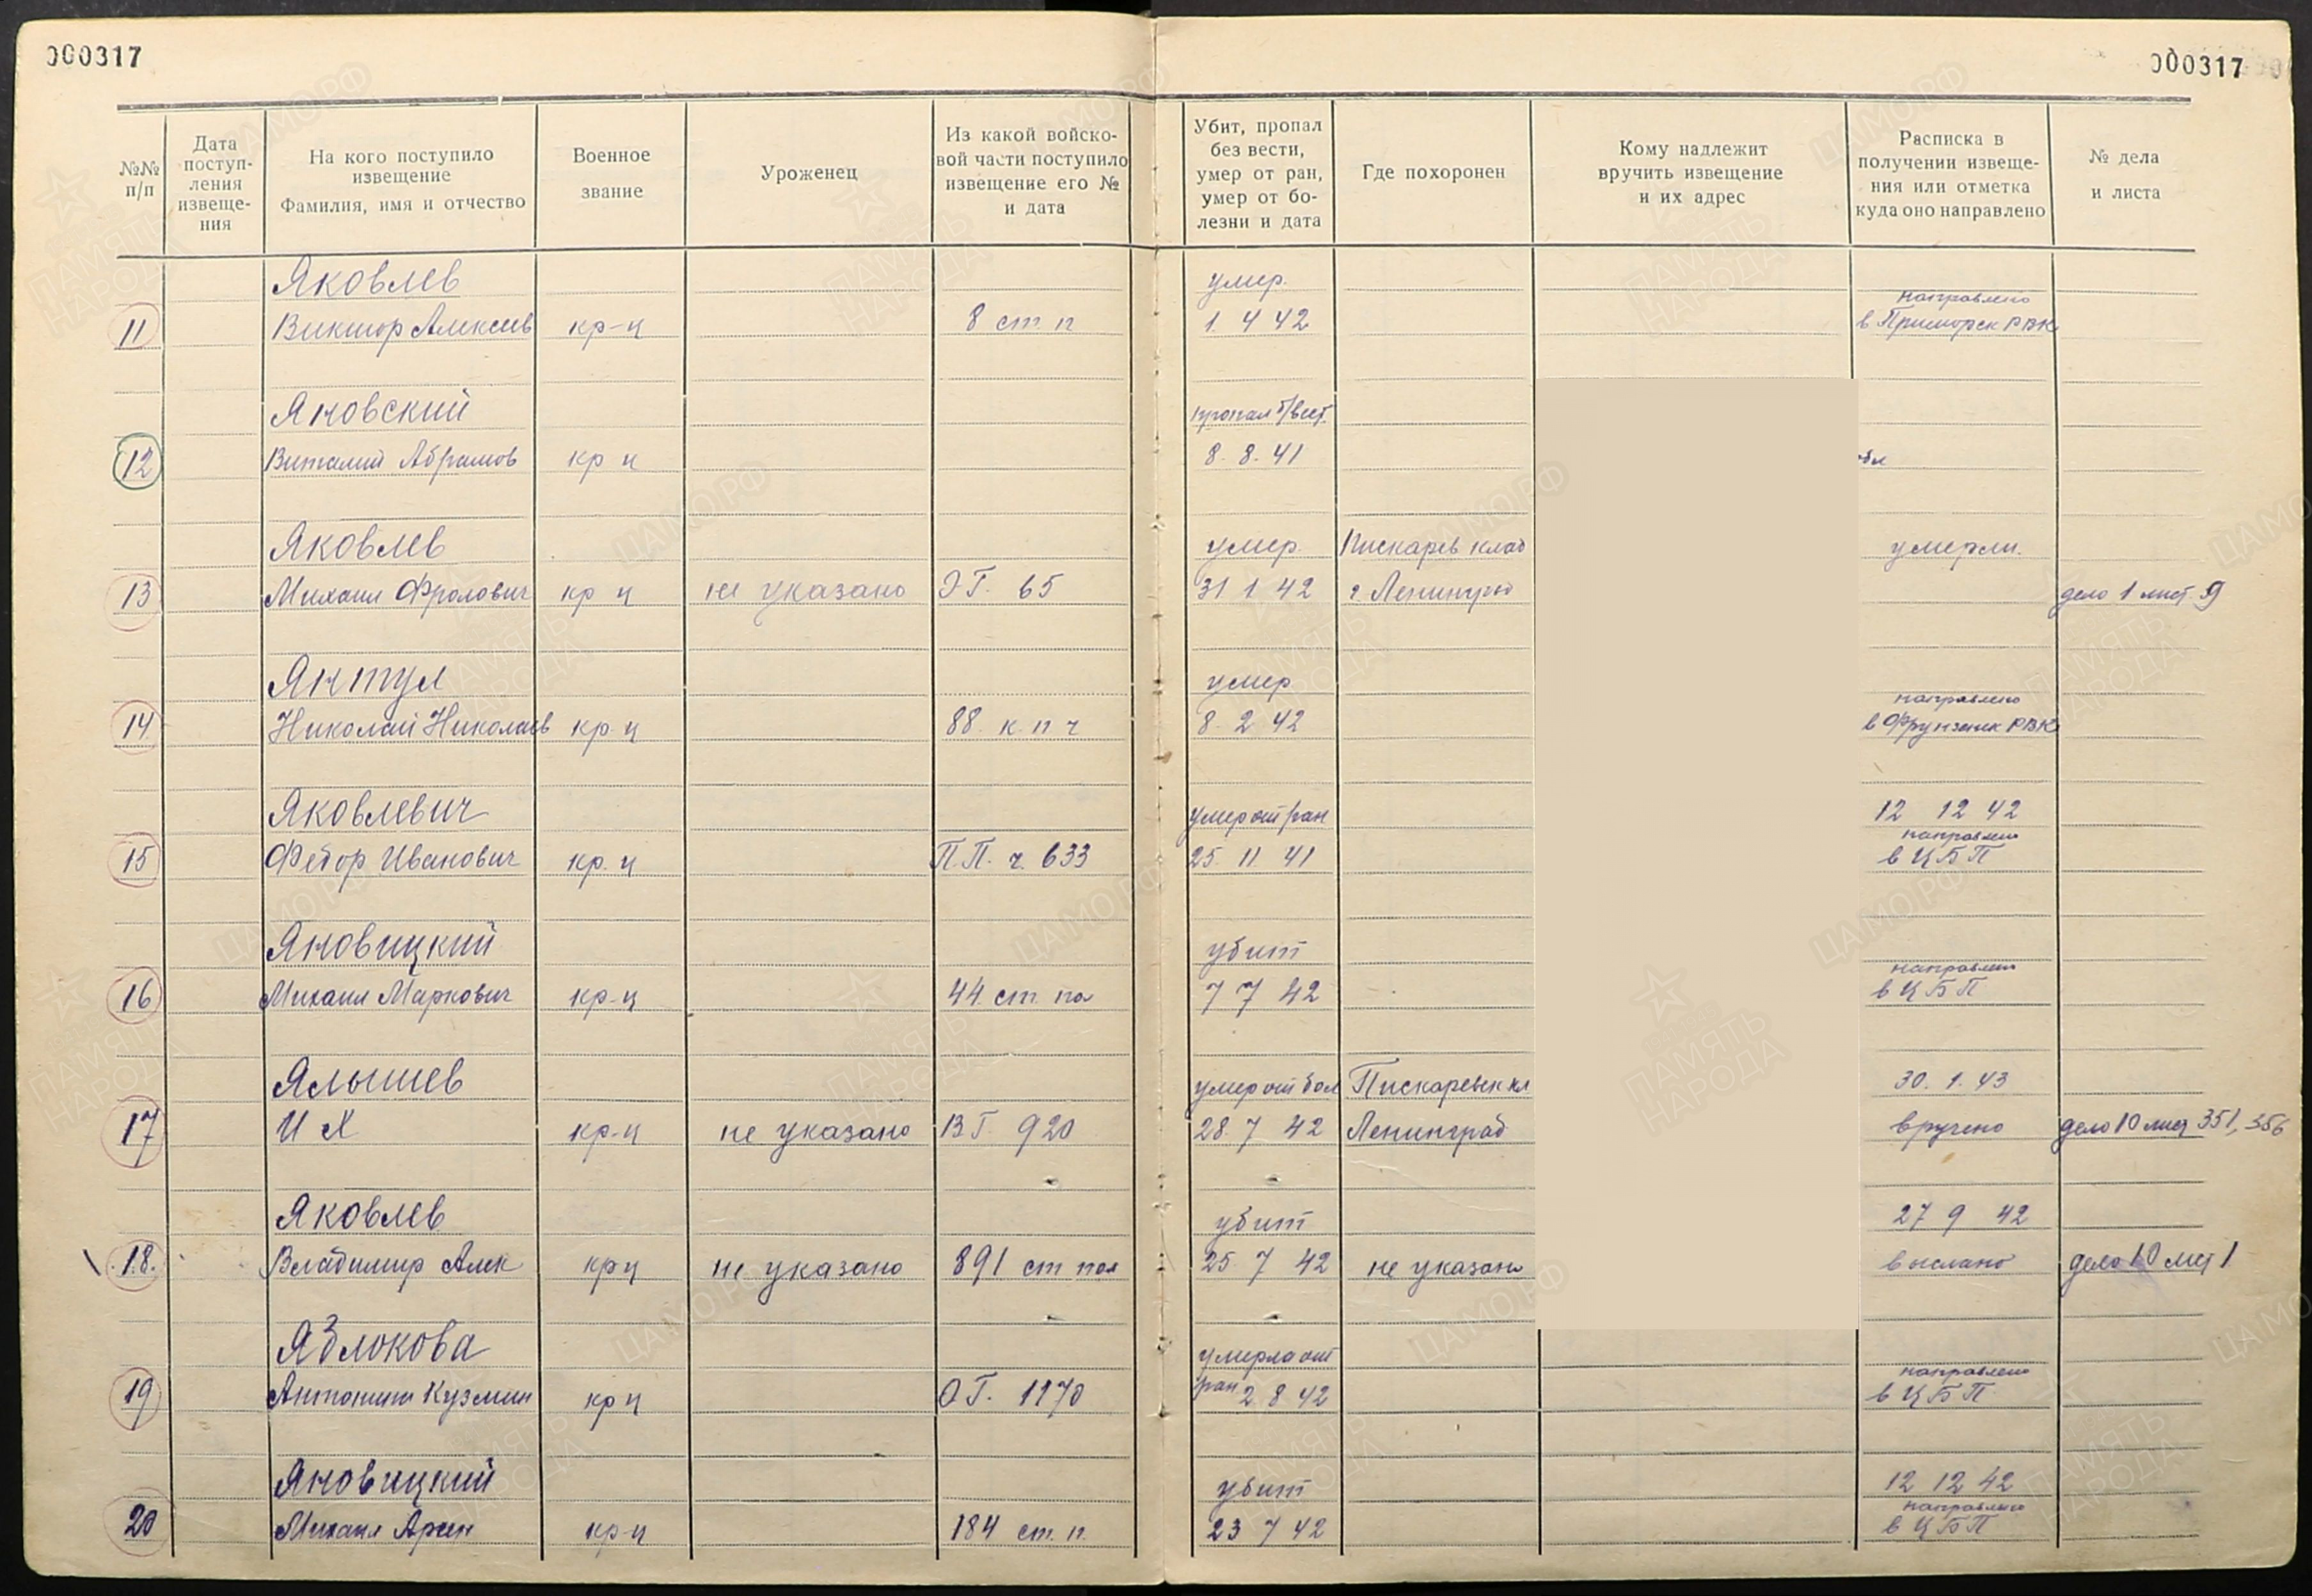 000317
000317
№№ п/п
Дата поступ-
ления
извеще-
ния
На кого поступило
извещение
Фамилия, имя и отчество
Военное
звание
Уроженец
Из какой войско-
вой части поступило
извещение его №
и дата
Убит, пропал
без вести,
умер от ран,
умер от бо-
лезни и дата
Где похоронен
Кому надлежит
вручить извещение
и их адрес
Расписка в
получении извеще-
ния или отметка
куда оно направлено
№ дела
и листа
Яковлев умер. направлено
11 Виктор Алексеев кр-ц 8 ст. п 1 4 42 в Приморск РВК
Яновский пропал б/вест.
12 Виталий Абрамов кр ц 8. 8. 41 обл
Яковлев умер. Пискарев клад умерли.
13 Михаил Фролович кр ц не указано ЭГ. 65 31 1 42 г. Ленинград дело 1 лист. 9
Янтул умер направлено
14 Николай Николаев кр-ц 88. к. п ч 8. 2 42 в Фрунзенск РВК
Яковлевич умер от ран 12 12 42
направлено
15 Федор Иванович кр. ц П.П. ч. 633 25. 11 41 в ЦБП
Яновицкий убит направлено
16 Михаил Маркович кр-ц 44 ст. пол 7 7 42 в ЦБП
Ялышев умер от бол Пискаревск кл 30. 1. 43
17 И Х кр-ц не указано ВГ 920 28. 7 42 Ленинград вручено дело 10 лист 351, 356
Яковлев убит 27 9 42
18. Владимир Алек кр ц не указано 891 ст пол 25 7 42 не указано выслано дело 10 лист 1
Яблокова умерла от направлено
19 Антонина Кузмин кр ц ОГ. 1170 ран 2 8 42 в ЦБП
Яновицкий убит 12 12 42
направлено
20 Михаил Арин кр-ц 184 ст. п. 23 7 42 в ЦБП
ПАМЯТЬ НАРОДА
ЦАМО.РФ